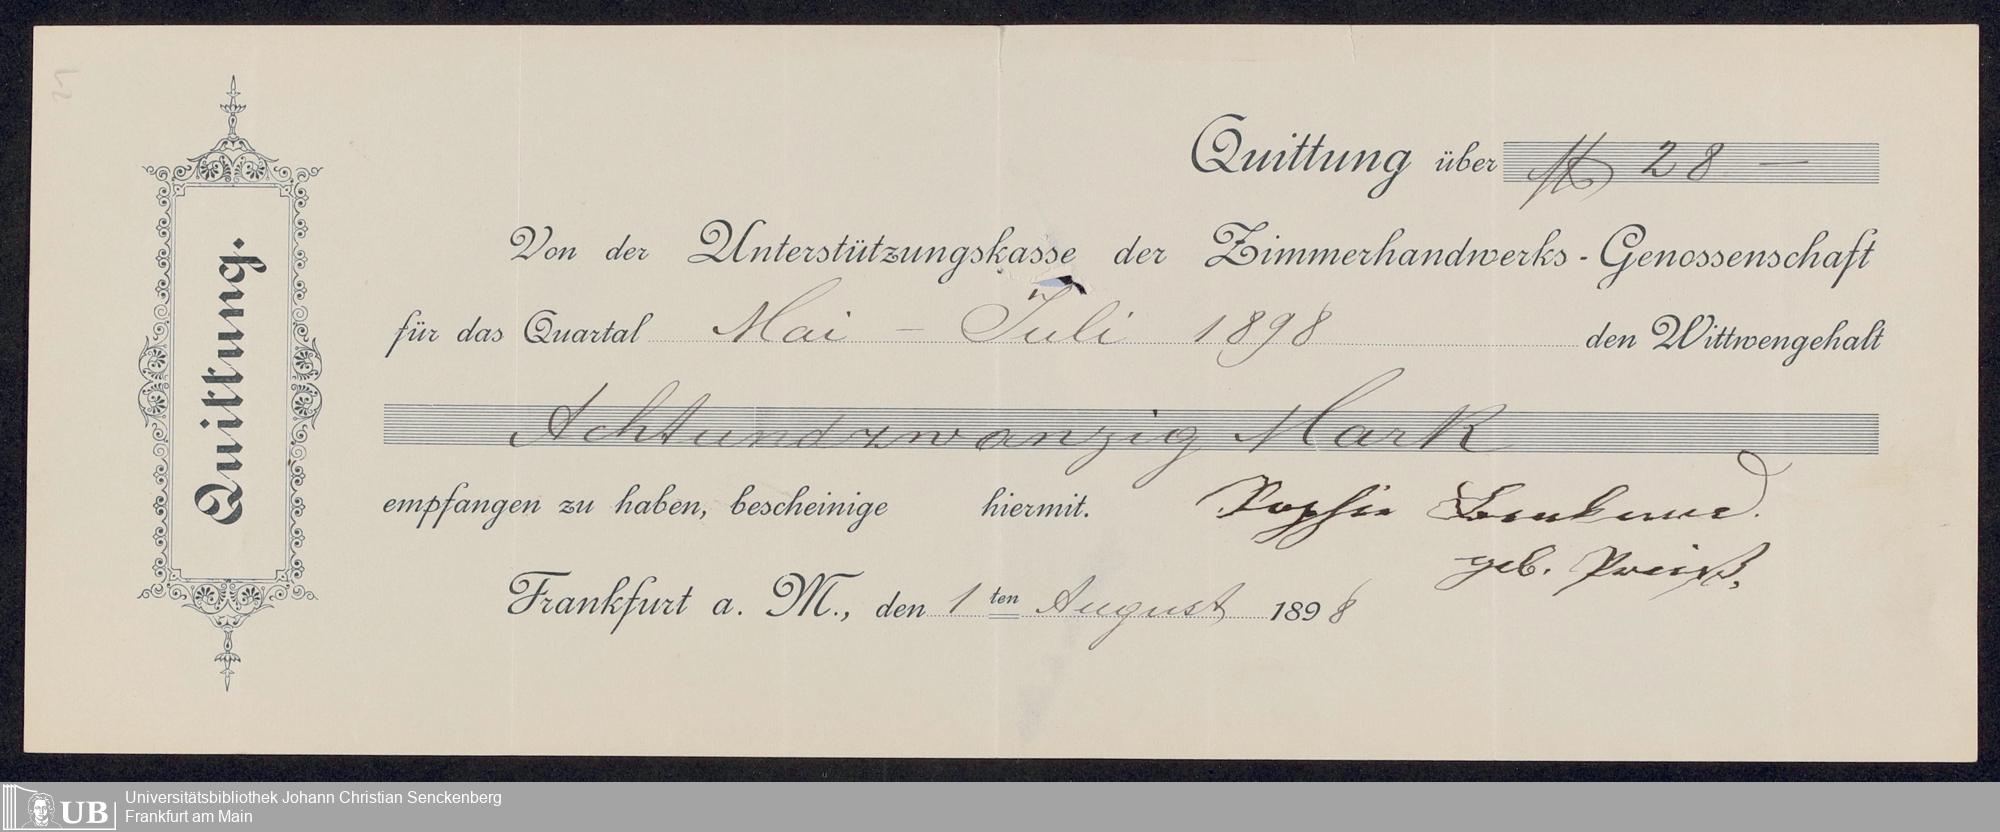 Quittung.
Quittung über M 28 —
Von der Unterstützungskasse der Zimmerhandwerks-Genossenschaft
für das Quartal Mai – Juli 1898 den Wittwengehalt
Achtundzwanzig Mark
empfangen zu haben, bescheinige hiermit. Sophie
geb. Preiß,
Frankfurt a. M., den 1 ten August 1898
UB
Universitätsbibliothek Johann Christian Senckenberg
Frankfurt am Main